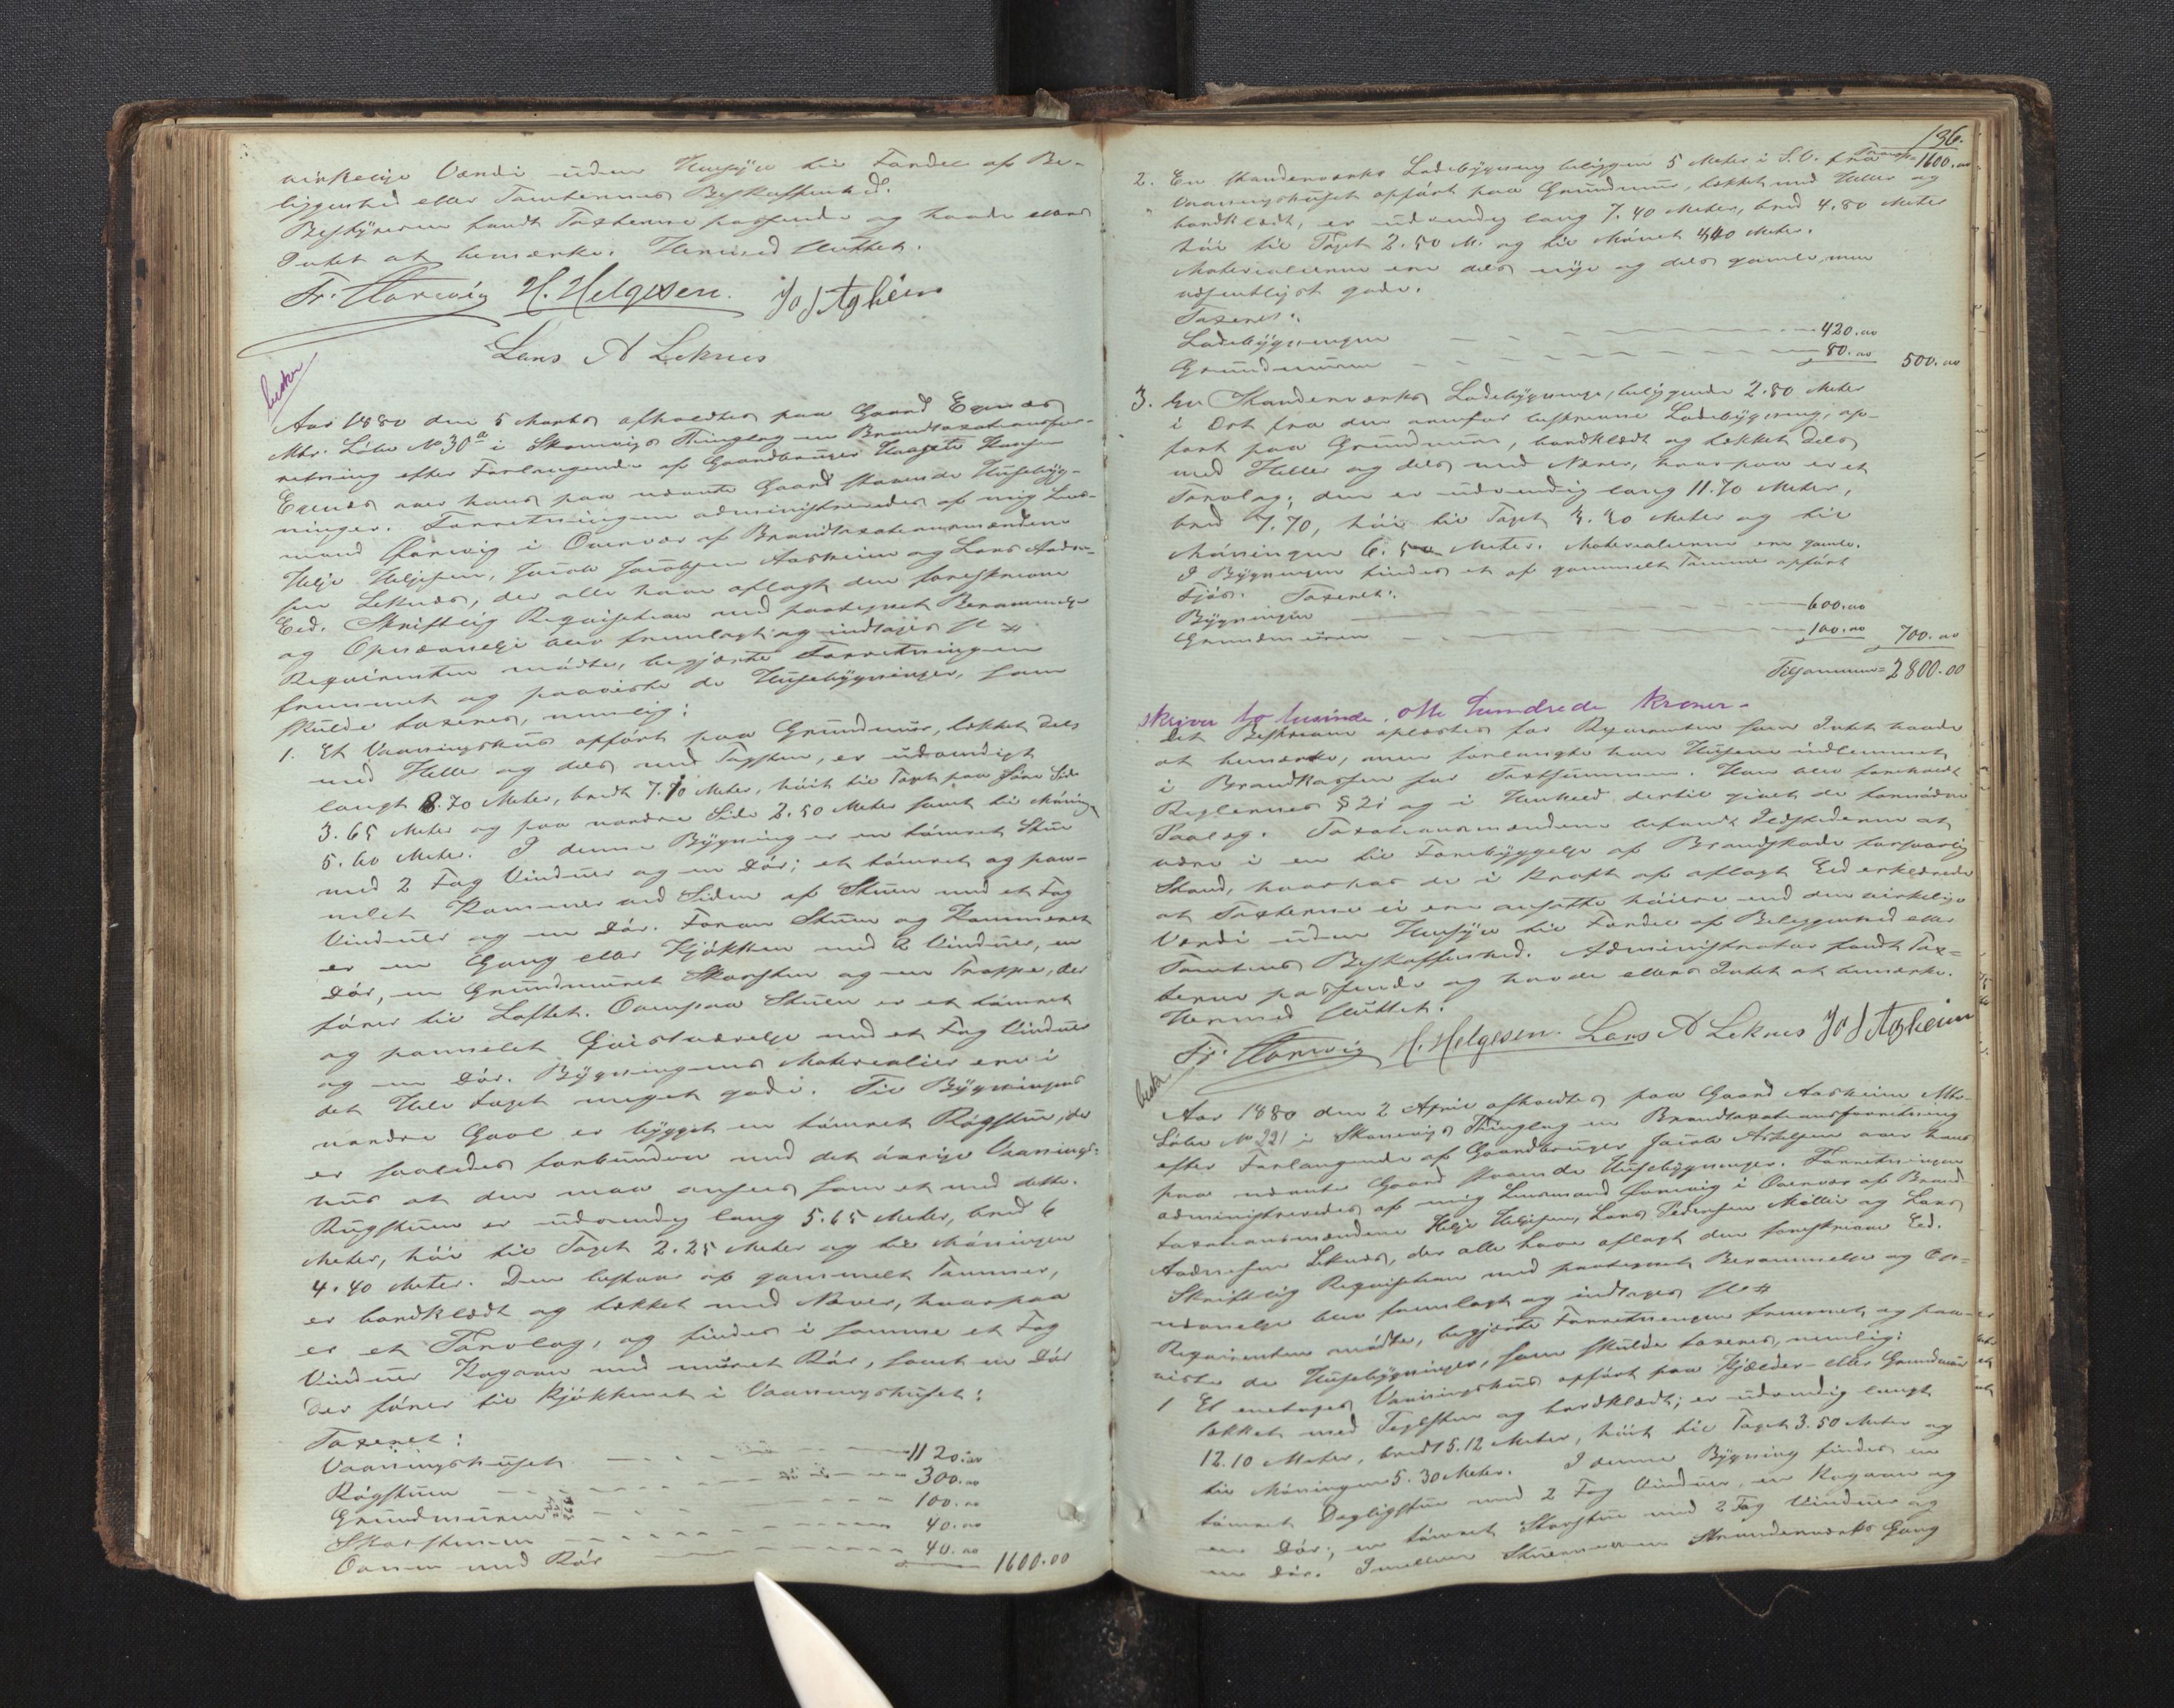 virkelige Værdi uden Hensyn til Fordel af Be-
liggenhed eller Tomternes Beskaffenhed.
Bestyreren fandt Taxterne passende og havde ellers
Intet at bemærke. Hermed sluttet.
Fr. Horwig H. Helgesen. J O J Agheim
Lars A Leknes
Aar 1880 den 5 Marts afholdtes paa Gaard Egenæs
Mtr. Løbe No 30a i Skonevigs Thinglag en Brandtaxationsfor-
retning efter Forlangende af Gaardbruger Hansen
Egenæs over hans paa nævnte Gaard staaende Husebyg-
ninger. Forretningen administreredes af mig Lens-
mand Horwig i Overvær af Brandtaxationsmændene
Helge Helgesen, Jacob Jacobsen Aasheim og Lars Anders-
sen Leknæs, der alle have aflagt den foreskrevne
Eed. Skriftlig Reqvisition med paategnet Berammelse
og Opnævnelse blev fremlagt og indtages sl #
Reqvirenten mødte, begjærte Forretningen
fremmet og paaviste de Husebygninger, som
skulde taxeres, nemlig:
1. Et Vaaningshus opført paa Grundmur, tækket dels
med Heller og dels med Tagsten, er udvendigt
langt 8.70 Meter, bredt 7.70 Meter, høit til Taget paa søre Side
3.65 Meter og paa nordre Side 2.50 Meter samt til Møning
5.60 Meter. I denne Bygning er en tømret Stue
med 2 Fag Vinduer og en Dør; et tømret og pan-
nelet Kammer ved Siden af Stuen med et Fag
Vinduer og en Dør. Foran Stuen og Kammeret
er en Gang eller Kjøkken med 2 Vinduer, en
Dør, en Grundmuret Skorsten og en Trappe, der
fører til Loftet. Ovenpaa Stuen er et tømret
og pannelet Qvistværelse med et Fag Vinduer
og en Dør. Bygningens Materialier ere i
det Hele taget meget gode. Til Bygningens
nordre Gavl er bygget en tømret Røgstue, der
er saaledes forbunden med det øvrige Vaanings-
hus at den maa ansees som et med dette.
Røgstuen er udvendig lang 5.65 Meter, bred 6
Meter, høi til Taget 2.25 Meter og til Møningen
4.40 Meter. Den bestaar af gammelt Tømmer,
er bordklædt og tækket med Næver, hvorpaa
er et Torvlag, og findes i samme et Fag
Vinduer Kogeovn med muret Rør, samt en Dør
der fører til Kjøkkenet i Vaaningshuset:
Taxeret:
Vaaningshuset 1120.00
Røgstuen 300.00
Grundmuren 100.00
Skorstenen 40.00
Ovnen med Rør 40.00 1600.00
136.
Transp. 1600.00
2. En Standerværks Ladebygning beliggen 5 Meter i S.V. fra
Vaaningshuset opført paa Grundmur, tækket med Heller og
bordklædt, er udvendig lang 7.40 Meter, bred 4.80 Meter
høi til Taget 2.50 M. og til Mønet 4.40 Meter.
Materialierne ere dels nye og dels gamle, men
væsentligst gode.
Taxeret:
Ladebygningen 420.00
Grundmuren 80.00 500.00
3. En Standerværks Ladebygning, beliggende 2.80 Meter
i Ost fra den ovenfor beskrevne Ladebygning, op-
ført paa Grundmur, bordklædt og tækket dels
med Heller og dels med Næver, hvorpaa er et
Torvlag; den er udvendig lang 11.70 Meter,
bred 7.70, høi til Taget Meter og til
Møningen 6.50 Meter. Materialierne ere gamle.
I Bygningen findes et af gammelt Tømmer opført
Fjøs. Taxeret:
Bygningen 600.00
Grundmuren 100.00 700.00
Tilsammen = 2800.00
skriver to tusinde, otte hundrede Kroner.
Det Beskrevne oplæstes for Reqvirenten som Intet havde
at bemærke, men forlangte han Husene indlemmet
i Brandkassen for Taxtsummen. Han blev foreholdt
Reglernes § 21 og i Henhold dertil givet de fornødne
Paalæg. Taxationsmændene befandt Ildstederne at
være i en til Forebyggelse af Brandskade forsvarlig
Stand, hvorhos de i Kraft af aflagt Eed erklærede
at Taxterne ei ere ansatte høiere end den virkelige
Værdi uden Hensyn til Fordel af Beliggenhed eller
Tomtens Beskaffenhed. Administrator fandt Tax-
terne passende og havde ellers Intet at bemærke.
Hermed sluttet.
Fr. Horwig H. Helgesen. Lars A Leknes J O J Agheim
Aar 1880 den 2 April afholdtes paa Gaard Aasheim Mtr.
Løbe No 221 i Skonevigs Thinglag en Brandtaxationsforretning
efter Forlangende af Gaardbruger Jacob over hans
paa nævnte Gaard staaende Husebygninger. Forretningen
administreredes af mig Lensmand Horwig i Overvær af Brand
taxationsmændene Helge Helgesen, Lars Pedersen Møllir og Lars
Andersen Leknæs, der alle have aflagt den foreskrevne Eed.
Skriftlig Reqvisition med paategnet Berammelse og Op-
nævnelse blev fremlagt og indtages sl #
Reqvirenten mødte, begjærte Forretningen fremmet og paa-
viste de Husebygninger, som skulde taxeres, nemlig:
1 Et enetages Vaaningshus opført paa Kjælder- eller Grundmur
tækket med Teglsten og bordklædt; er udvendig langt
12.10 Meter, bredt 5.12 Meter, høit til Taget 3.50 Meter og
til Møningen 5.30 Meter. I denne Bygning findes en
tømret Dagligstue med 2 Fag Vinduer, en Kogeovn og
en Dør; en tømret Storstue med 2 Fag Vinduer og
en Dør. Imellem Stuerne en Standerværks Gang